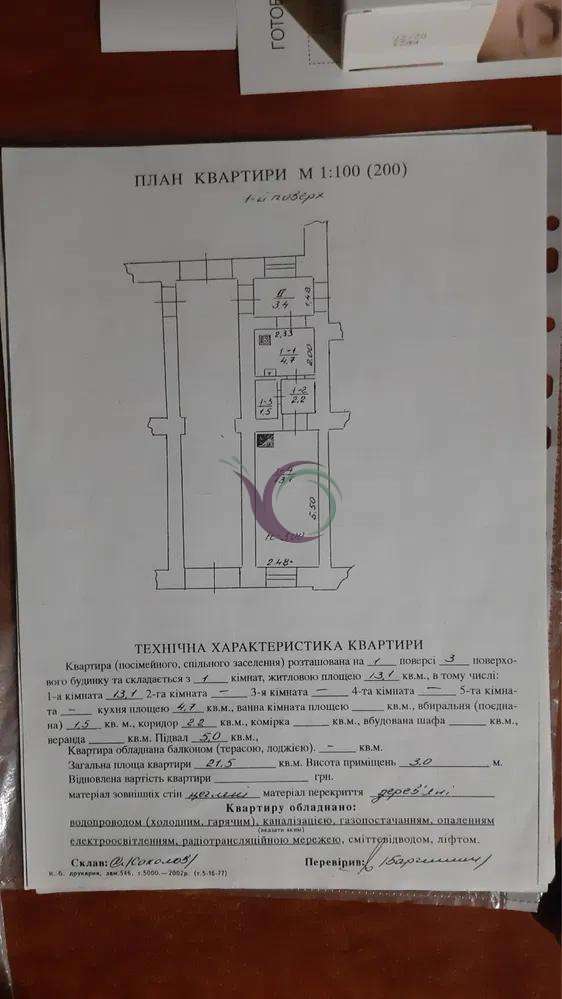 ГОТОВ
ПЛАН КВАРТИРИ М 1:100 (200)
1-й поверх
II
3.4
1.48
2.33
1-1
4.7
2.00
1-3
1.5
1-2
2.2
13.1
5.50
3.00
2.48
ТЕХНІЧНА ХАРАКТЕРИСТИКА КВАРТИРИ
Квартира (посімейного, спільного заселення) розташована на 1 поверсі 3 поверхо-
вого будинку та складається з 1 кімнат, житловою площею 13,1 кв.м., в тому числі:
1-а кімната 13,1 2-га кімната — 3-я кімната — 4-та кімната — 5-та кімна-
та — кухня площею 4,7 кв.м., ванна кімната площею кв.м., вбиральня (поєдна-
на) 1.5 кв. м., коридор 2.2 кв.м., комірка кв.м., вбудована шафа кв.м.,
веранда кв.м. Підвал 5.0 кв.м.,
Квартира обладнана балконом (терасою, лоджією). — кв.м.
Загальна площа квартири 21.5 кв.м. Висота приміщень 3.0 м.
Відновлена вартість квартири грн.
матеріал зовнішніх стін цегляні матеріал перекриття дерев'яні
Квартиру обладнано:
водопроводом (холодним, гарячим), каналізацією, газопостачанням, опаленням
(вказати яким)
електроосвітленням, радіотрансляційною мережею, сміттєвідводом, ліфтом.
Склав: Перевірив:
К. Ф. друкарня, зам.546, т.5000.—2002р. (т.5-16-77)